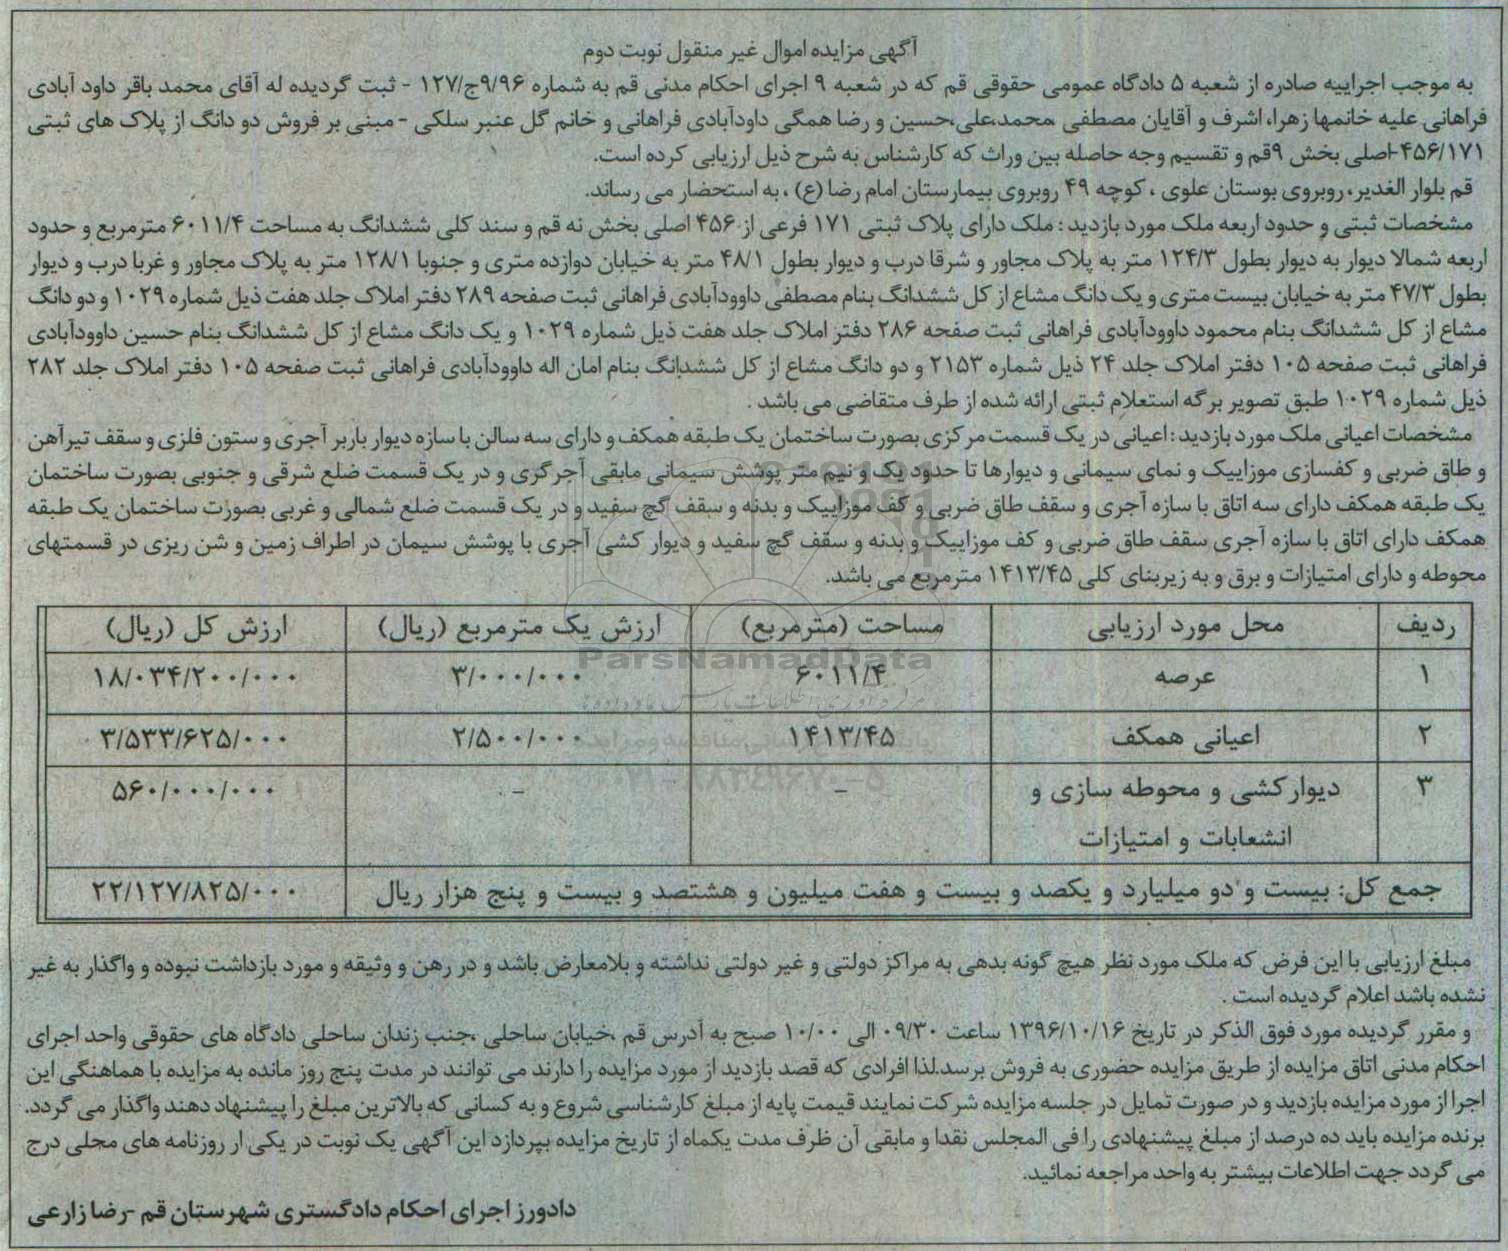 آگهی مزایده اموال غیر منقول نوبت دوم
به موجب اجراییه صادره از شعبه ۵ دادگاه عمومی حقوقی قم که در شعبه ۹ اجرای احکام مدنی قم به شماره ۹/۹۶ج/۱۲۷ - ثبت گردیده له آقای محمد باقر داود آبادی
فراهانی علیه خانمها زهرا، اشرف و آقایان مصطفی ،محمد،علی،حسین و رضا همگی داودآبادی فراهانی و خانم گل عنبر سلکی - مبنی بر فروش دو دانگ از پلاک های ثبتی
۴۵۶/۱۷۱-اصلی بخش ۹قم و تقسیم وجه حاصله بین وراث که کارشناس به شرح ذیل ارزیابی کرده است.
قم بلوار الغدیر، روبروی بوستان علوی ، کوچه ۴۹ روبروی بیمارستان امام رضا (ع) ، به استحضار می رساند.
مشخصات ثبتی و حدود اربعه ملک مورد بازدید : ملک دارای پلاک ثبتی ۱۷۱ فرعی از ۴۵۶ اصلی بخش نه قم و سند کلی ششدانگ به مساحت ۶۰۱۱/۴ مترمربع و حدود
اربعه شمالا دیوار به دیوار بطول ۱۲۴/۳ متر به پلاک مجاور و شرقا درب و دیوار بطول ۴۸/۱ متر به خیابان دوازده متری و جنوبا ۱۲۸/۱ متر به پلاک مجاور و غربا درب و دیوار
بطول ۴۷/۳ متر به خیابان بیست متری و یک دانگ مشاع از کل ششدانگ بنام مصطفی داوودآبادی فراهانی ثبت صفحه ۲۸۹ دفتر املاک جلد هفت ذیل شماره ۱۰۲۹ و دو دانگ
مشاع از کل ششدانگ بنام محمود داوودآبادی فراهانی ثبت صفحه ۲۸۶ دفتر املاک جلد هفت ذیل شماره ۱۰۲۹ و یک دانگ مشاع از کل ششدانگ بنام حسین داوودآبادی
فراهانی ثبت صفحه ۱۰۵ دفتر املاک جلد ۲۴ ذیل شماره ۲۱۵۳ و دو دانگ مشاع از کل ششدانگ بنام امان اله داوودآبادی فراهانی ثبت صفحه ۱۰۵ دفتر املاک جلد ۲۸۲
ذیل شماره ۱۰۲۹ طبق تصویر برگه استعلام ثبتی ارائه شده از طرف متقاضی می باشد .
مشخصات اعیانی ملک مورد بازدید : اعیانی در یک قسمت مرکزی بصورت ساختمان یک طبقه همکف و دارای سه سالن با سازه دیوار باربر آجری و ستون فلزی و سقف تیرآهن
و طاق ضربی و کفسازی موزاییک و نمای سیمانی و دیوارها تا حدود یک و نیم متر پوشش سیمانی مابقی آجرگری و در یک قسمت ضلع شرقی و جنوبی بصورت ساختمان
یک طبقه همکف دارای سه اتاق با سازه آجری و سقف طاق ضربی و کف موزاییک و بدنه و سقف گچ سفید و در یک قسمت ضلع شمالی و غربی بصورت ساختمان یک طبقه
همکف دارای اتاق با سازه آجری سقف طاق ضربی و کف موزاییک و بدنه و سقف گچ سفید و دیوار کشی آجری با پوشش سیمان در اطراف زمین و شن ریزی در قسمتهای
محوطه و دارای امتیازات و برق و به زیربنای کلی ۱۴۱۳/۴۵ مترمربع می باشد.
ردیف محل مورد ارزیابی مساحت (مترمربع) ارزش یک مترمربع (ریال) ارزش کل (ریال)
۱ عرصه ۶۰۱۱/۴ ۳/۰۰۰/۰۰۰ ۱۸/۰۳۴/۲۰۰/۰۰۰
ParsNamadData
۲ اعیانی همکف ۱۴۱۳/۴۵ ۲/۵۰۰/۰۰۰ ۳/۵۳۳/۶۲۵/۰۰۰
۳ دیوارکشی و محوطه سازی و - - ۵۶۰/۰۰۰/۰۰۰
انشعابات و امتیازات
جمع کل: بیست و دو میلیارد و یکصد و بیست و هفت میلیون و هشتصد و بیست و پنج هزار ریال ۲۲/۱۲۷/۸۲۵/۰۰۰
مبلغ ارزیابی با این فرض که ملک مورد نظر هیچ گونه بدهی به مراکز دولتی و غیر دولتی نداشته و بلامعارض باشد و در رهن و وثیقه و مورد بازداشت نبوده و واگذار به غیر
نشده باشد اعلام گردیده است .
و مقرر گردیده مورد فوق الذکر در تاریخ ۱۳۹۶/۱۰/۱۶ ساعت ۰۹/۳۰ الی ۱۰/۰۰ صبح به آدرس قم ،خیابان ساحلی ،جنب زندان ساحلی دادگاه های حقوقی واحد اجرای
احکام مدنی اتاق مزایده از طریق مزایده حضوری به فروش برسد.لذا افرادی که قصد بازدید از مورد مزایده را دارند می توانند در مدت پنج روز مانده به مزایده با هماهنگی این
اجرا از مورد مزایده بازدید و در صورت تمایل در جلسه مزایده شرکت نمایند قیمت پایه از مبلغ کارشناسی شروع و به کسانی که بالاترین مبلغ را پیشنهاد دهند واگذار می گردد.
برنده مزایده باید ده درصد از مبلغ پیشنهادی را فی المجلس نقدا و مابقی آن ظرف مدت یکماه از تاریخ مزایده بپردازد این آگهی یک نوبت در یکی ار روزنامه های محلی درج
می گردد جهت اطلاعات بیشتر به واحد مراجعه نمائید.
دادورز اجرای احکام دادگستری شهرستان قم -رضا زارعی